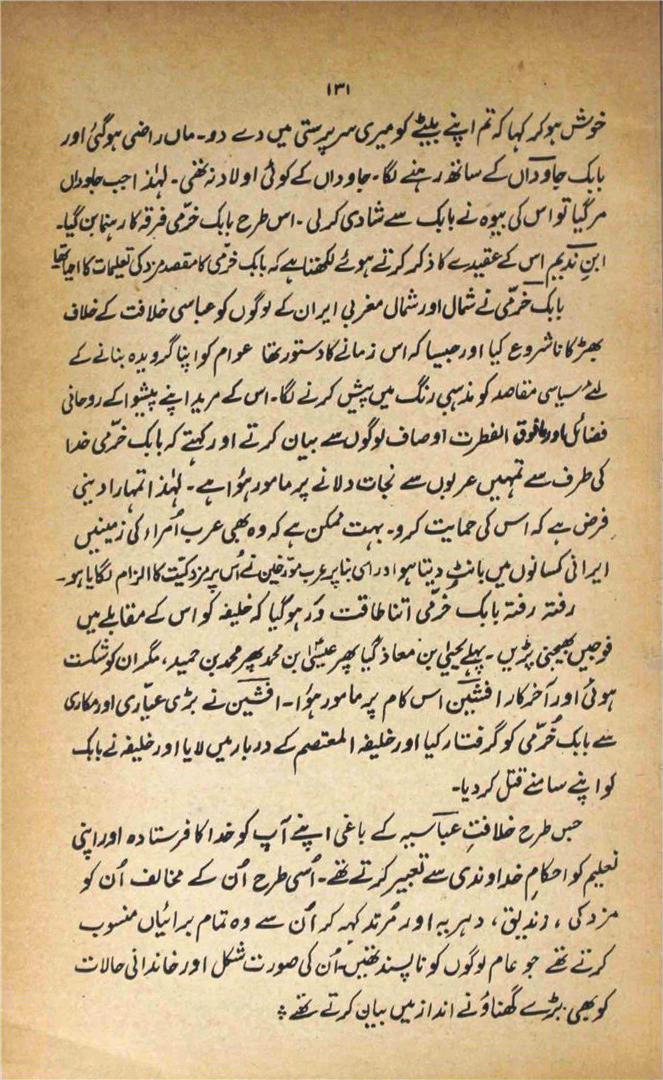 ۱۳۱
خوش ہو کر کہا کہ تم اپنے بیٹے کو میری سرپرستی میں دے دو۔ ماں راضی ہو گئی اور
بابک جاوداں کے ساتھ رہنے لگا۔ جاوداں کے کوئی اولاد نہ تھی۔ لہٰذا جب جاوداں
مر گیا تو اس کی بیوہ نے بابک سے شادی کر لی۔ اس طرح بابک خرّمی فرقہ کا رہنما بن گیا۔
ابنِ ندیم اس کے عقیدے کا ذکر کرتے ہوئے لکھتا ہے کہ بابک خرّمی کا مقصد مزد کی تعلیمات کا احیا تھا
بابک خرّمی نے شمال اور شمال مغربی ایران کے لوگوں کو عباسی خلافت کے خلاف
بھڑکانا شروع کیا اور جیسا کہ اس زمانے کا دستور تھا عوام کو اپنا گرویدہ بنانے کے
لئے سیاسی مقاصد کو مذہبی رنگ میں پیش کرنے لگا۔ اس کے مرید اپنے پیشوا کے روحانی
فضائل اور مافوق الفطرت اوصاف لوگوں سے بیان کرتے اور کہتے کہ بابک خرّمی خدا
کی طرف سے تمہیں عربوں سے نجات دلانے پر مامور ہوا ہے۔ لہٰذا تمہارا دینی
فرض ہے کہ اس کی حمایت کرو۔ بہت ممکن ہے کہ وہ بھی عرب اُمراء کی زمینیں
ایرانی کسانوں میں بانٹ دیتا ہو اور اسی بنا پر عرب مورّخین نے اُس پر مزدکیّت کا الزام لگایا ہو۔
رفتہ رفتہ بابک خرّمی اتنا طاقت ور ہو گیا کہ خلیفہ کو اس کے مقابلے میں
فوجیں بھیجنی پڑیں۔ پہلے یحییٰ بن معاذ گیا پھر عیسیٰ بن محمد پھر محمد بن حمید، مگر ان کو شکست
ہوئی اور آخر کار افشین اس کام پر مامور ہوا۔ افشین نے بڑی عیّاری اور مکاری
سے بابک خُرّمی کو گرفتار کیا اور خلیفہ المعتصم کے دربار میں لایا اور خلیفہ نے بابک
کو اپنے سامنے قتل کر دیا۔
جس طرح خلافتِ عباسیہ کے باغی اپنے آپ کو خدا کا فرستادہ اور اپنی
تعلیم کو احکامِ خداوندی سے تعبیر کرتے تھے۔ اُسی طرح اُن کے مخالف اُن کو
مزدکی، زندیق، دہریہ اور مُرتد کہہ کر اُن سے وہ تمام برائیاں منسوب
کرتے تھے جو عام لوگوں کو ناپسند تھیں۔ اُن کی صورت شکل اور خاندانی حالات
کو بھی بڑے گھناؤنے انداز میں بیان کرتے تھے ؞